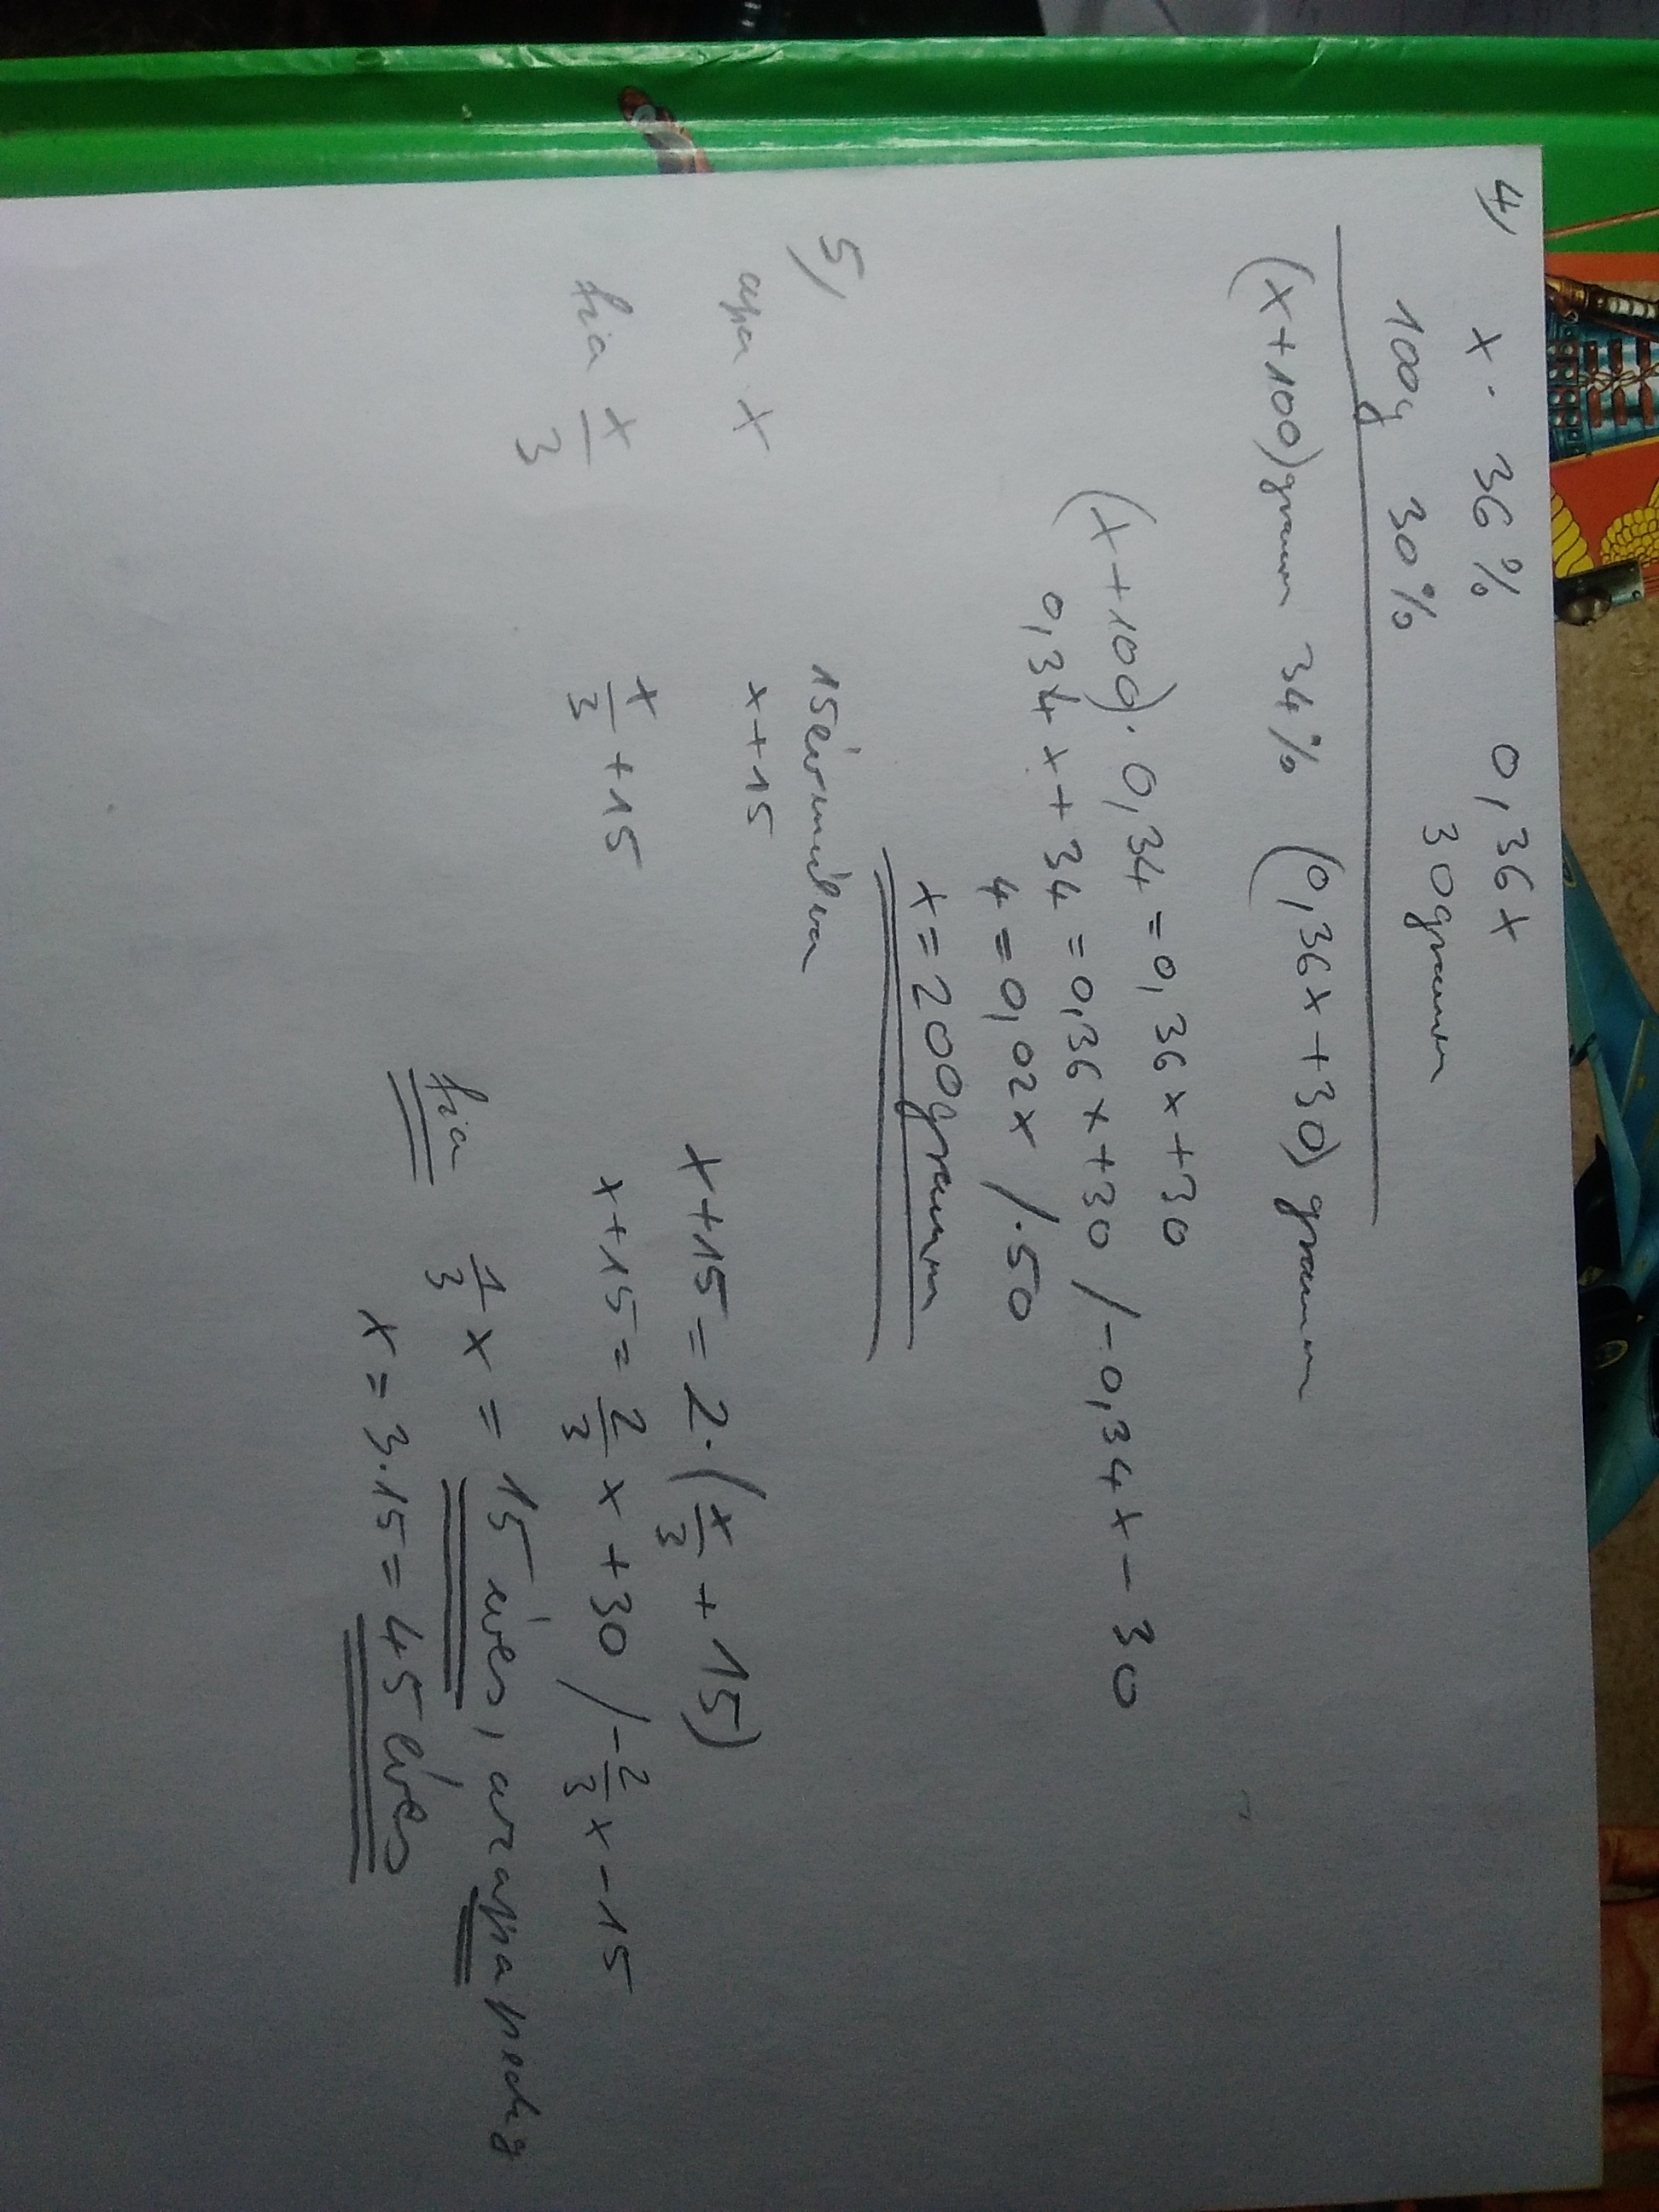 4)
x. 36% 0,36x
100g 30% 30gramm
(x+100)gramm 34% (0,36x+30) gramm
(x+100)·0,34=0,36x+30
0,34x+34=0,36x+30 /-0,34x-30
4=0,02x /·50
x=200gramm
5)
15 év múlva
apa x x+15 x+15=2·(x/3+15)
fia x/3 x/3+15 x+15=2/3x+30 /-2/3x-15
fia 1/3x=15 éves, az apa pedig
x=3·15=45 éves